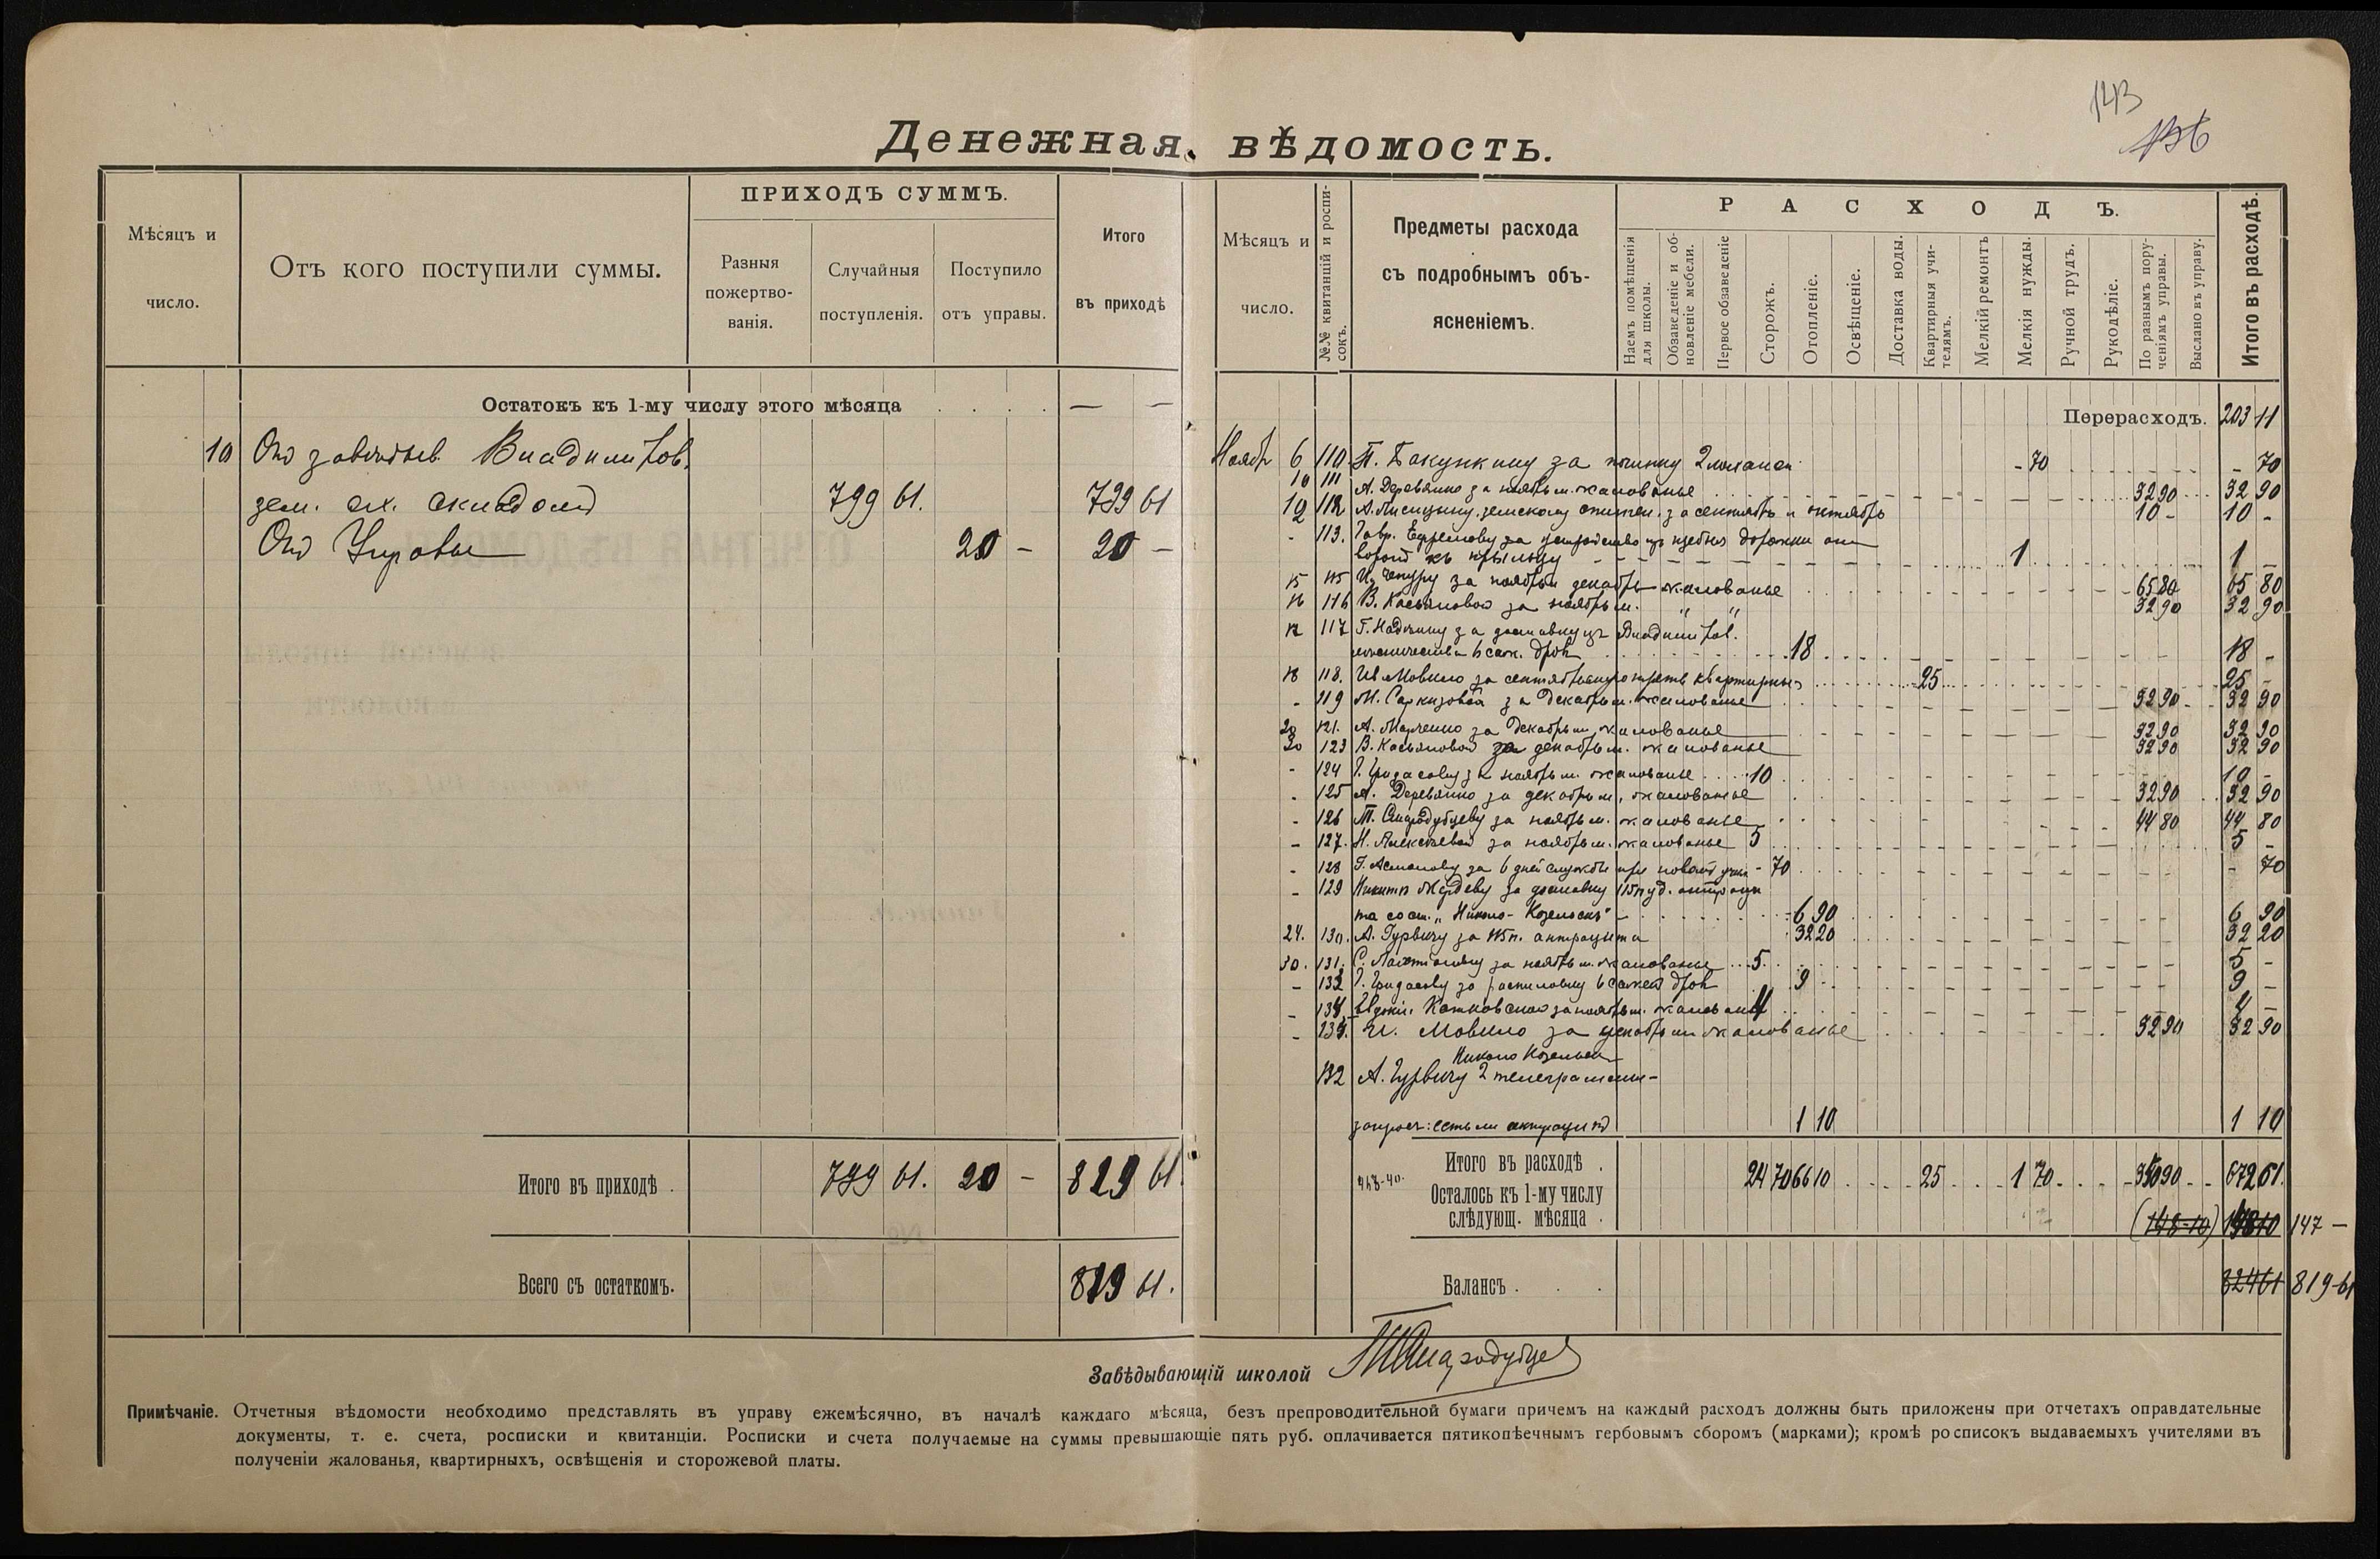 143
136
Денежная вѣдомость.
Мѣсяцъ и число.
Отъ кого поступили суммы.
ПРИХОДЪ СУММЪ.
Разныя пожертво-
ванія.
Случайныя поступленія.
Поступило отъ управы.
Итого въ приходѣ
Остатокъ къ 1-му числу этого мѣсяца . . . . — —
10 От завѣдыв. Владимiров.
зем. с.х. складомъ 799 61. 799 61
От Управы 20 – 20 –
Итого въ приходѣ . 799 61. 20 – 819 61.
Всего съ остаткомъ. 819 61.
Мѣсяцъ и число.
№№ квитанцій и роспи-
сокъ.
Предметы расхода
съ подробнымъ объ-
ясненіемъ.
РАСХОДЪ.
Наемъ помѣщенія для школы.
Обзаведеніе и об-
новленіе мебели.
Первое обзаведеніе
Сторожъ.
Отопленіе.
Освѣщеніе.
Доставка воды.
Квартирныя учи-
телямъ.
Мелкій ремонтъ
Мелкія нужды.
Ручной трудъ.
Рукодѣліе.
По разнымъ пору-
ченіямъ управы.
Выслано въ управу.
Итого въ расходѣ.
Перерасходъ. 203 11
Ноябр 6 110. П. Бакункину за починку 2 - 70 - 70
10 111 А. Деревянко за ноябрь м. жалованье 32 90 32 90
12 112 А. Лисицыну, земскому за сентябрь и октябрь 10 - 10 -
- 113. Гавр. Ефремову за дорожки от
ворот къ крыльцу 1 1 –
15 115 за ноябрь и декабрь жалованье 65 80 65 80
16 116 В. Касьяновой за ноябрь м. " " 32 90 32 90
17 117 Г. за доставку изъ Владимiров.
лѣсничества 6 саж. дров 18 18 -
18 118. Ив Мовило за сентябрьскую треть квартирных 25 25 -
- 119 М. Саркизовой за Декабрь м. жалованье 32 90 32 90
20 121. А. Марченко за Декабрь м. жалованье 32 90 32 90
20 123 В. Касьяновой за декабрь м. жалованье 32 90 32 90
- 124 Г. Гридасову за ноябрь м. жалованье 10 10 -
- 125 А. Деревянко за декабрь м. жалованье 32 90 32 90
- 126 Т. Стародубцеву за ноябрь м. жалованье 44 80 44 80
- 127. Н. Алексѣевой за ноябрь м. жалованье 5 5 -
- 128 Г. за 6 дней службы при - 70 - 70
- 129 Никитѣ за доставку 115 пуд. антраци
та со ст. „Николо-Козельскъ" 6 90 6 90
24. 130. А. Гурвичу за 115 п. антрацита 32 20 32 20
30. 131. С. за ноябрь м. жалованье 5 5 -
- 132 Г. Гридасову за распиловку 6 сажен дров 9 9 -
- 134. за ноябрь м. жалованье 4 4 -
- И. Мовило за декабрь м жалованье 32 90 32 90
Николо Козельск
132 А. Гурвичу 2 телеграммы-
запрос: есть ли антрацит 1 10 1 10
Итого въ расходѣ . 24 70 66 10 25 1 70 672 61.
Осталось къ 1-му числу
слѣдующ. мѣсяца . (148-10) 148 10 147 –
Балансъ . . . 824 61 819-61
Завѣдывающій школой Т Стародубцев
Примѣчаніе. Отчетныя вѣдомости необходимо представлять въ управу ежемѣсячно, въ началѣ каждаго мѣсяца, безъ препроводительной бумаги причемъ на каждый расходъ должны быть приложены при отчетахъ оправдательные
документы, т. е. счета, росписки и квитанціи. Росписки и счета получаемые на суммы превышающіе пять руб. оплачивается пятикопѣечнымъ гербовымъ сборомъ (марками); кромѣ росписокъ выдаваемыхъ учителями въ
полученіи жалованья, квартирныхъ, освѣщенія и сторожевой платы.